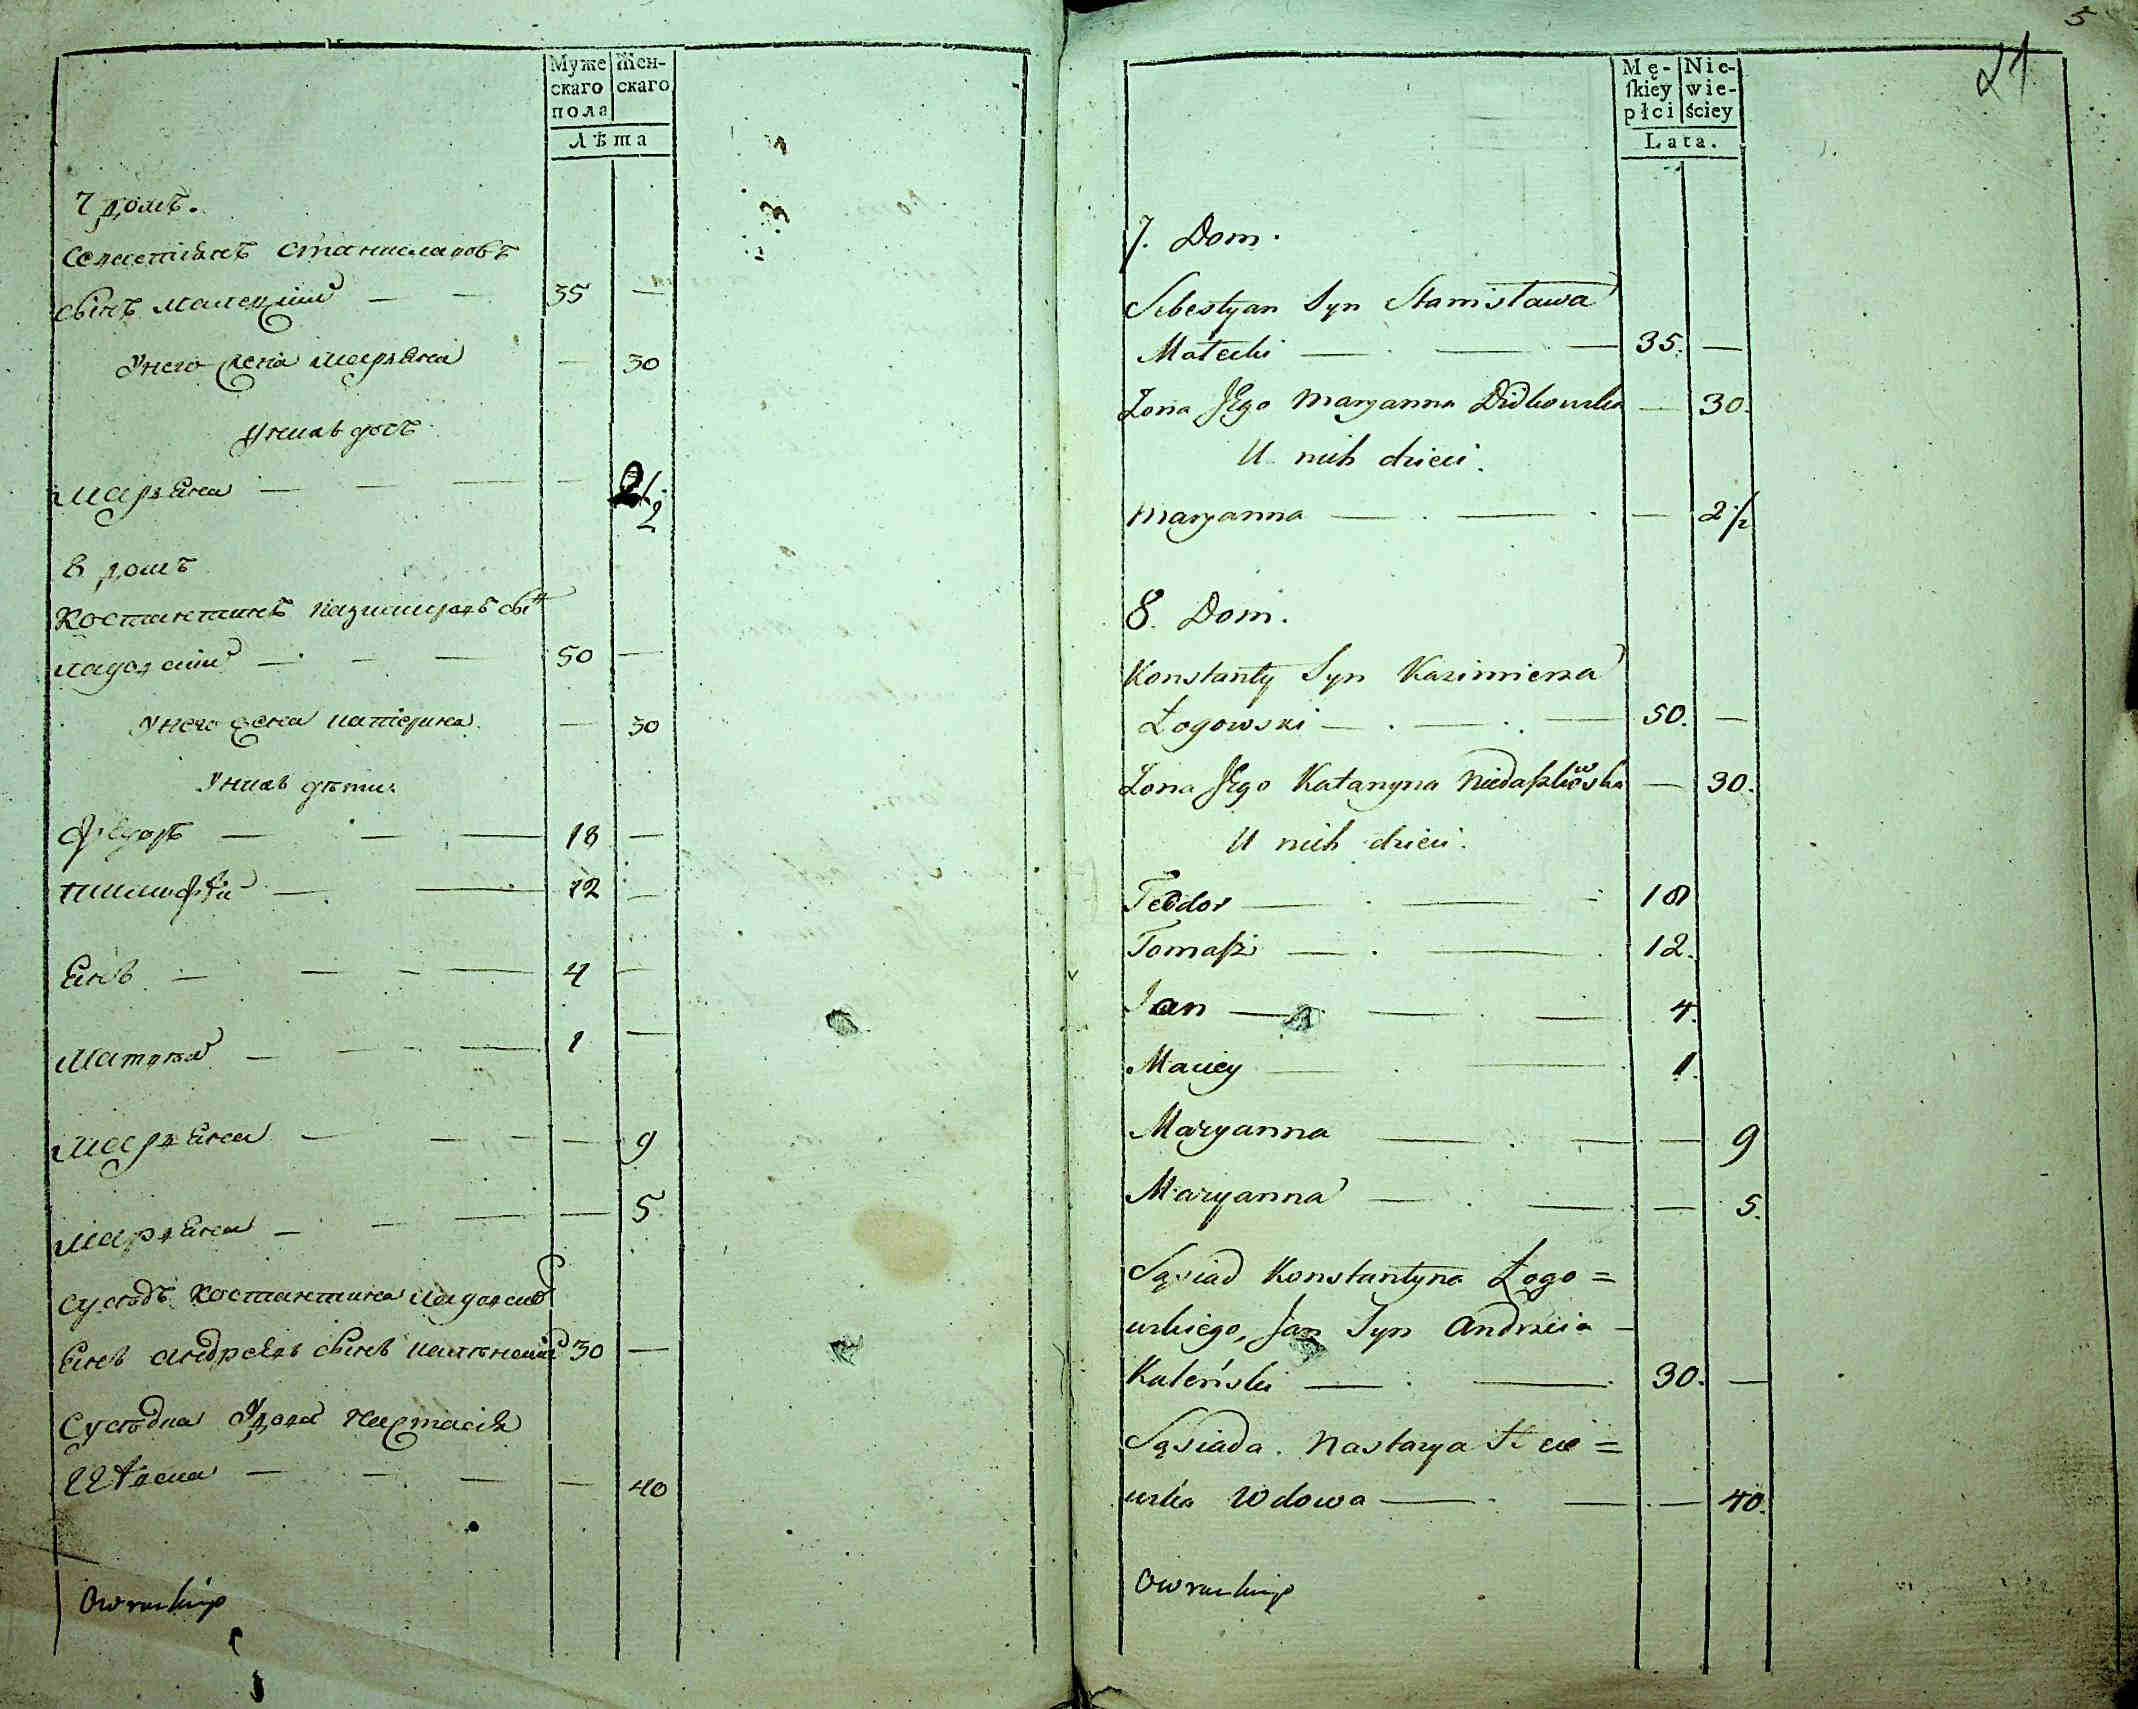 Муже Жен-
скаго скаго
пола
Лѣта
7 домъ.
Севастіянъ Станиславовъ
сынъ Малецкій — — 35 —
У него жена Марьяна — 30
У нихъ дочь
Марьяна — — — — 2 1/2
8 домъ
Костантинъ Казимировъ сын
Лаговскій — — — 50 —
У него жена Катерина — 30
У нихъ дѣти:
Фёдоръ — — — 18 —
Тимофѣй — — 12 —
Янъ — — — — 4 —
Матвѣй — — — 1 —
Марьяна — — — — 9
Марьяна — — — — 5
Сусѣдъ Костантина Лаговскаго
Янъ Андреевъ сынъ 30 —
Сусѣдка Удова Настасія
— — — — 40
Owruckiego
5
21
Mę- Nie-
ſkiey wie-
płci ściey
Lata.
7. Dom.
Sebestyan Syn Stanisława
Małecki — — — 35. —
Żona Jego Maryanna Didkowska — 30.
U nich dzieci.
Maryanna — — — 2 1/2
8. Dom.
Konstanty Syn Kazimierza
Łogowski — — — 50. —
Żona Jego Katarzyna Niedaszkowska — 30.
U nich dzieci.
Teodor — — 18
Tomaſz — — 12.
Jan — — — 4.
Maciey — — 1.
Maryanna — — — 9
Maryanna — — — 5.
Sąsiad Konstantyna Łogo=
wskiego, Jan Syn Andrzeia —
Kaleński — — 30. —
Sąsiada. Nastazya
wska Wdowa — — — 40.
Owruckiego